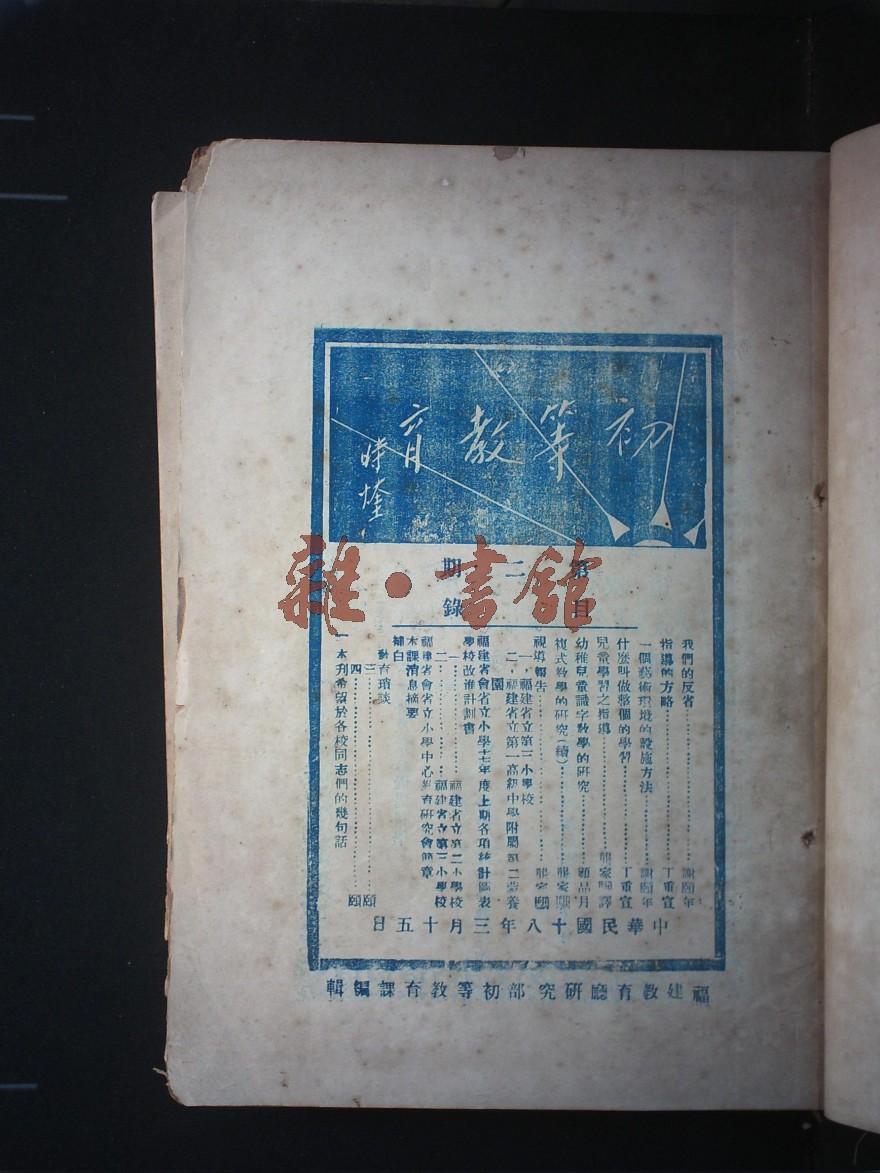 初等教育
時煃
雜·書館
第二期
目錄
我們的反省……謝頤年
指導的方略……丁重宣
一個藝術環境的設施方法……謝頤年
什麼叫做整個的學習……丁重宣
兒童學習之指導……譯
幼稚兒童識字教學的研究……顧品月
複式教學的研究(續)
視導報告
一、福建省立第三小學校
二、福建省立第一高級中學附屬第二蒙養園
福建省會省立小學十七年度上期各項統計圖表
學校改進計劃書
一……福建省立第二小學校
二……福建省立第三小學校
福建省會省立小學中心教育研究會簡章
本課消息摘要
補白
教育瑣談
三……頤
四……頤
一 本刊希望於各校同志們的幾句話
中華民國十八年三月十五日
福建教育廳研究部初等教育課編輯